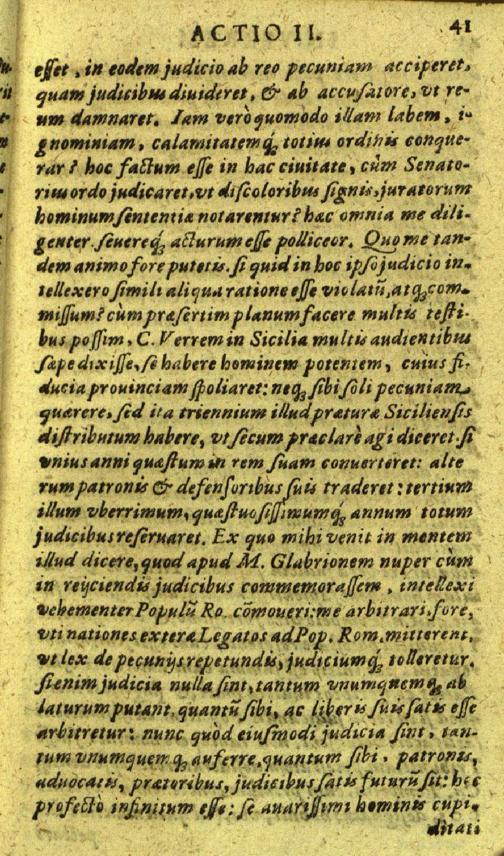 ACTIO II. 41
esset, in eodem judicio ab reo pecuniam acciperet,
quam judicibus diuideret, & ab accusatore, vt re-
um damnaret. Iam verò quomodo illam labem, i-
gnominiam, calamitatemq́; totius ordinis conque-
rar? hoc factum esse in hac ciuitate, cùm Senato-
rius ordo judicaret, vt discoloribus signis, juratorum
hominum sententiæ notarentur? hæc omnia me dili-
genter, seuereq́; acturum esse polliceor. Quo me tan-
dem animo fore putetis, si quid in hoc ipso judicio in-
tellexero simili aliqua ratione esse violatũ, atq; com-
missum? cùm præsertim planum facere multis testi-
bus possim, C. Verrem in Sicilia multis audientibus
sæpe dixisse, se habere hominem potentem, cuius fi-
ducia prouinciam spoliaret: neq; sibi soli pecuniam
quærere, sed ita triennium illud præturæ Siciliensis
distributum habere, vt secum præclarè agi diceret, si
vnius anni quæstum in rem suam conuerteret: alte
rum patronis & defensoribus suis traderet: tertium
illum vberrimum, quæstuosissimumq́; annum totum
judicibus reseruaret. Ex quo mihi venit in mentem
illud dicere, quod apud M. Glabrionem nuper cùm
in reijciendis judicibus commemorassem, intellexi
vehementer Populũ Ro. cõmoueri: me arbitrari, fore,
vti nationes exteræ Legatos ad Pop. Rom. mitterent,
vt lex de pecunijs repetundis, judiciumq́; tolleretur.
si enim judicia nulla sint, tantum vnumquemq; ab
laturum putant, quantũ sibi, ac liberis suis satis esse
arbitretur: nunc quòd eiusmodi judicia sint, tan-
tum vnumquemq; auferre, quantum sibi, patronis,
aduocatis, prætoribus, judicibus satis futurũ sit: hoc
profectò infinitum esse: se auarissimi hominis cupi-
ditati